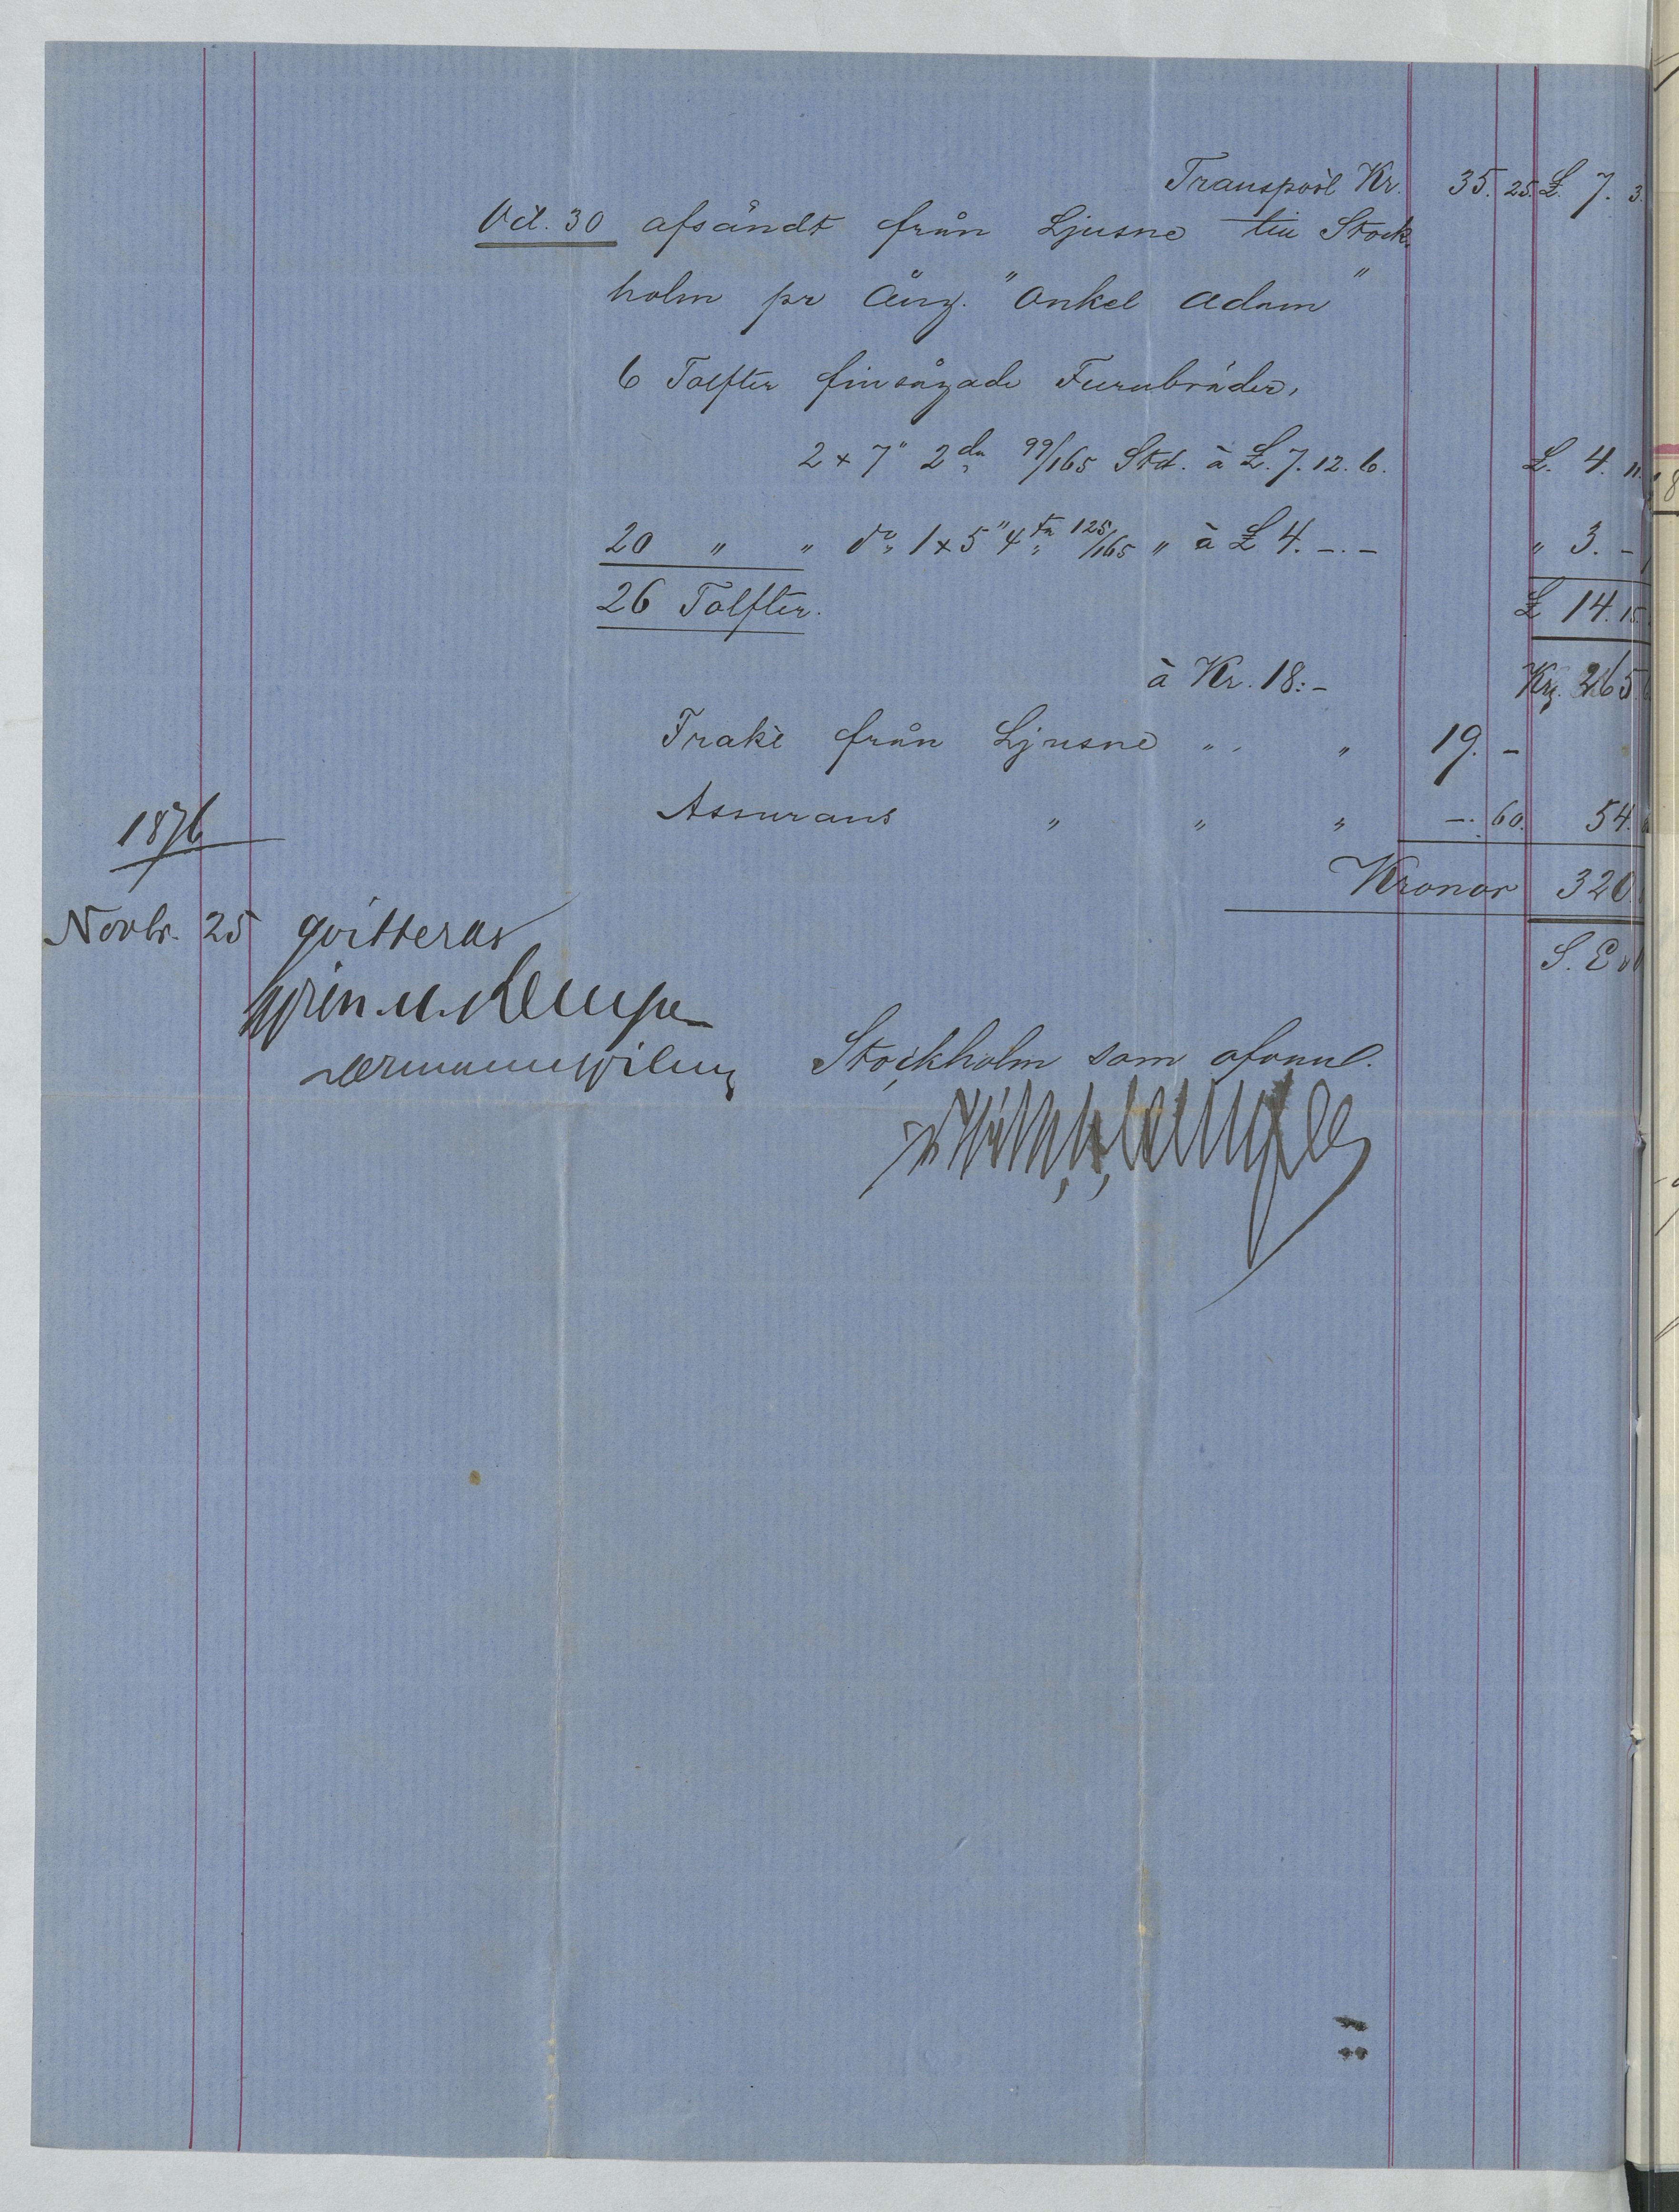 Transport Kr. 35. 25. £ 7. 3.
Oct. 30 afsändt från Ljusne till Stock
holm pr Ång. "Onkel Adam"
6 Tolfter finsågade Furubräder,
2 x 7" 2da 99/165 Std. à £. 7. 12. 6. £. 4. 11.
20 " " do 1 x 5" 4ta 125/165 " à £ 4. -. - " 3. -
26 Tolfter. £ 14. 15.
à Kr. 18:- Kr. 265
Frakt från Ljusne " " 19. -
Assurans " " " -. 60. 54.
1876
Kronor 320.
Novbr. 25 qvitteras
S. E.
Stockholm som ofvan.